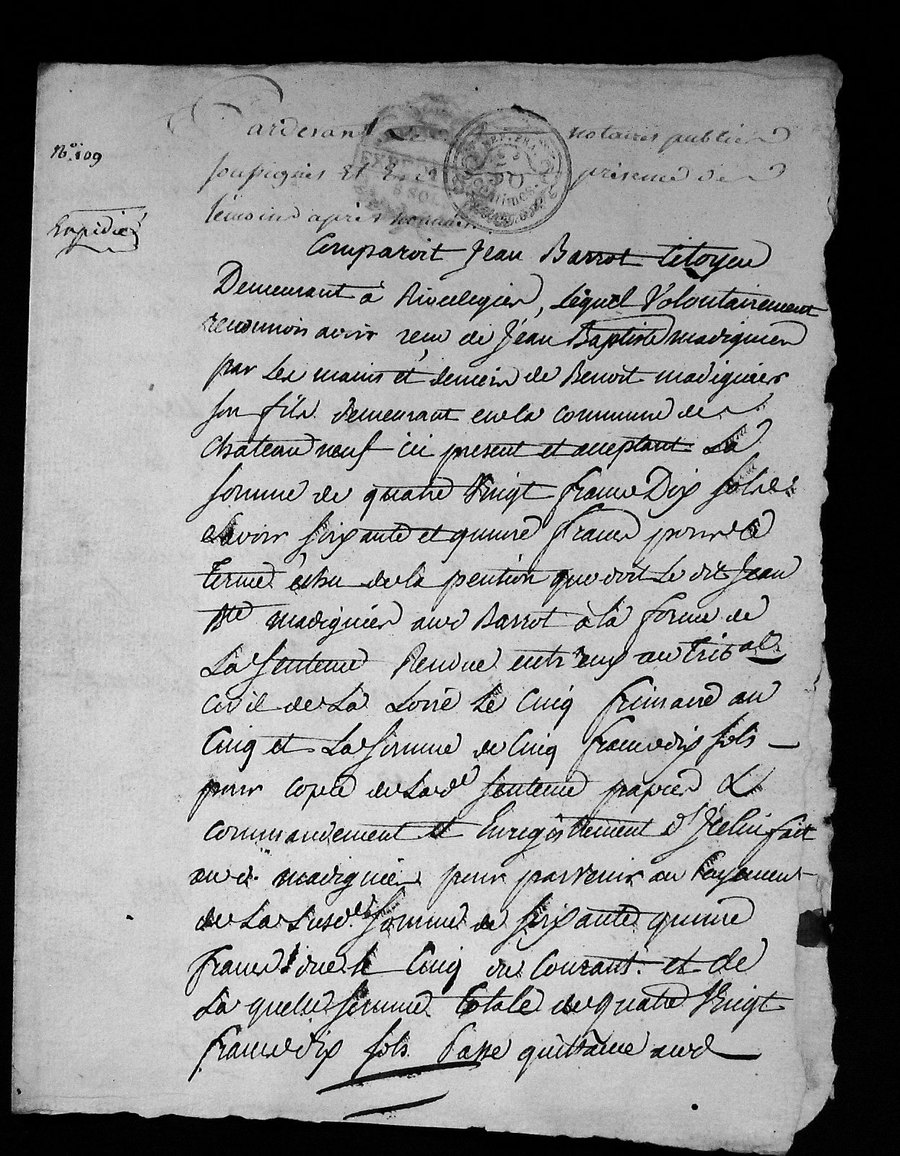 No. 109
Expedié
Pardevant notaires publics
soussignés Et En presence des
témoins après nommés
Comparoit Jean Barrot Citoyen
Demeurant à Rivedegier, Lequel Volontairement
reconnois avoir reçu de Jean Baptiste madignier
par Les mains et deniers de Benoit madignier
son fils demeurant en la commune de
chateauneuf ici present et acceptant La
somme de quatre Vingt francs Dix sols
savoir soixante et quinze francs pour le
terme échu de la pention que doit Le dit Jean
Bte madignier aud Barrot à la forme de
La sentence Rendue entr'eux au Tribal
civil de La Loire Le Cinq frimaire an
Cinq et La somme de Cinq francs dix sols
pour copie de Lade sentence papier &
commandement et Enregistrement d'Icelui fait
aud. madignier pour parvenir au Payement
de La susde somme de soixante quinze
francs due le Cinq du Courant. et de
La quelle somme totale de quatre Vingt
francs dix sols. Passe quittance aud